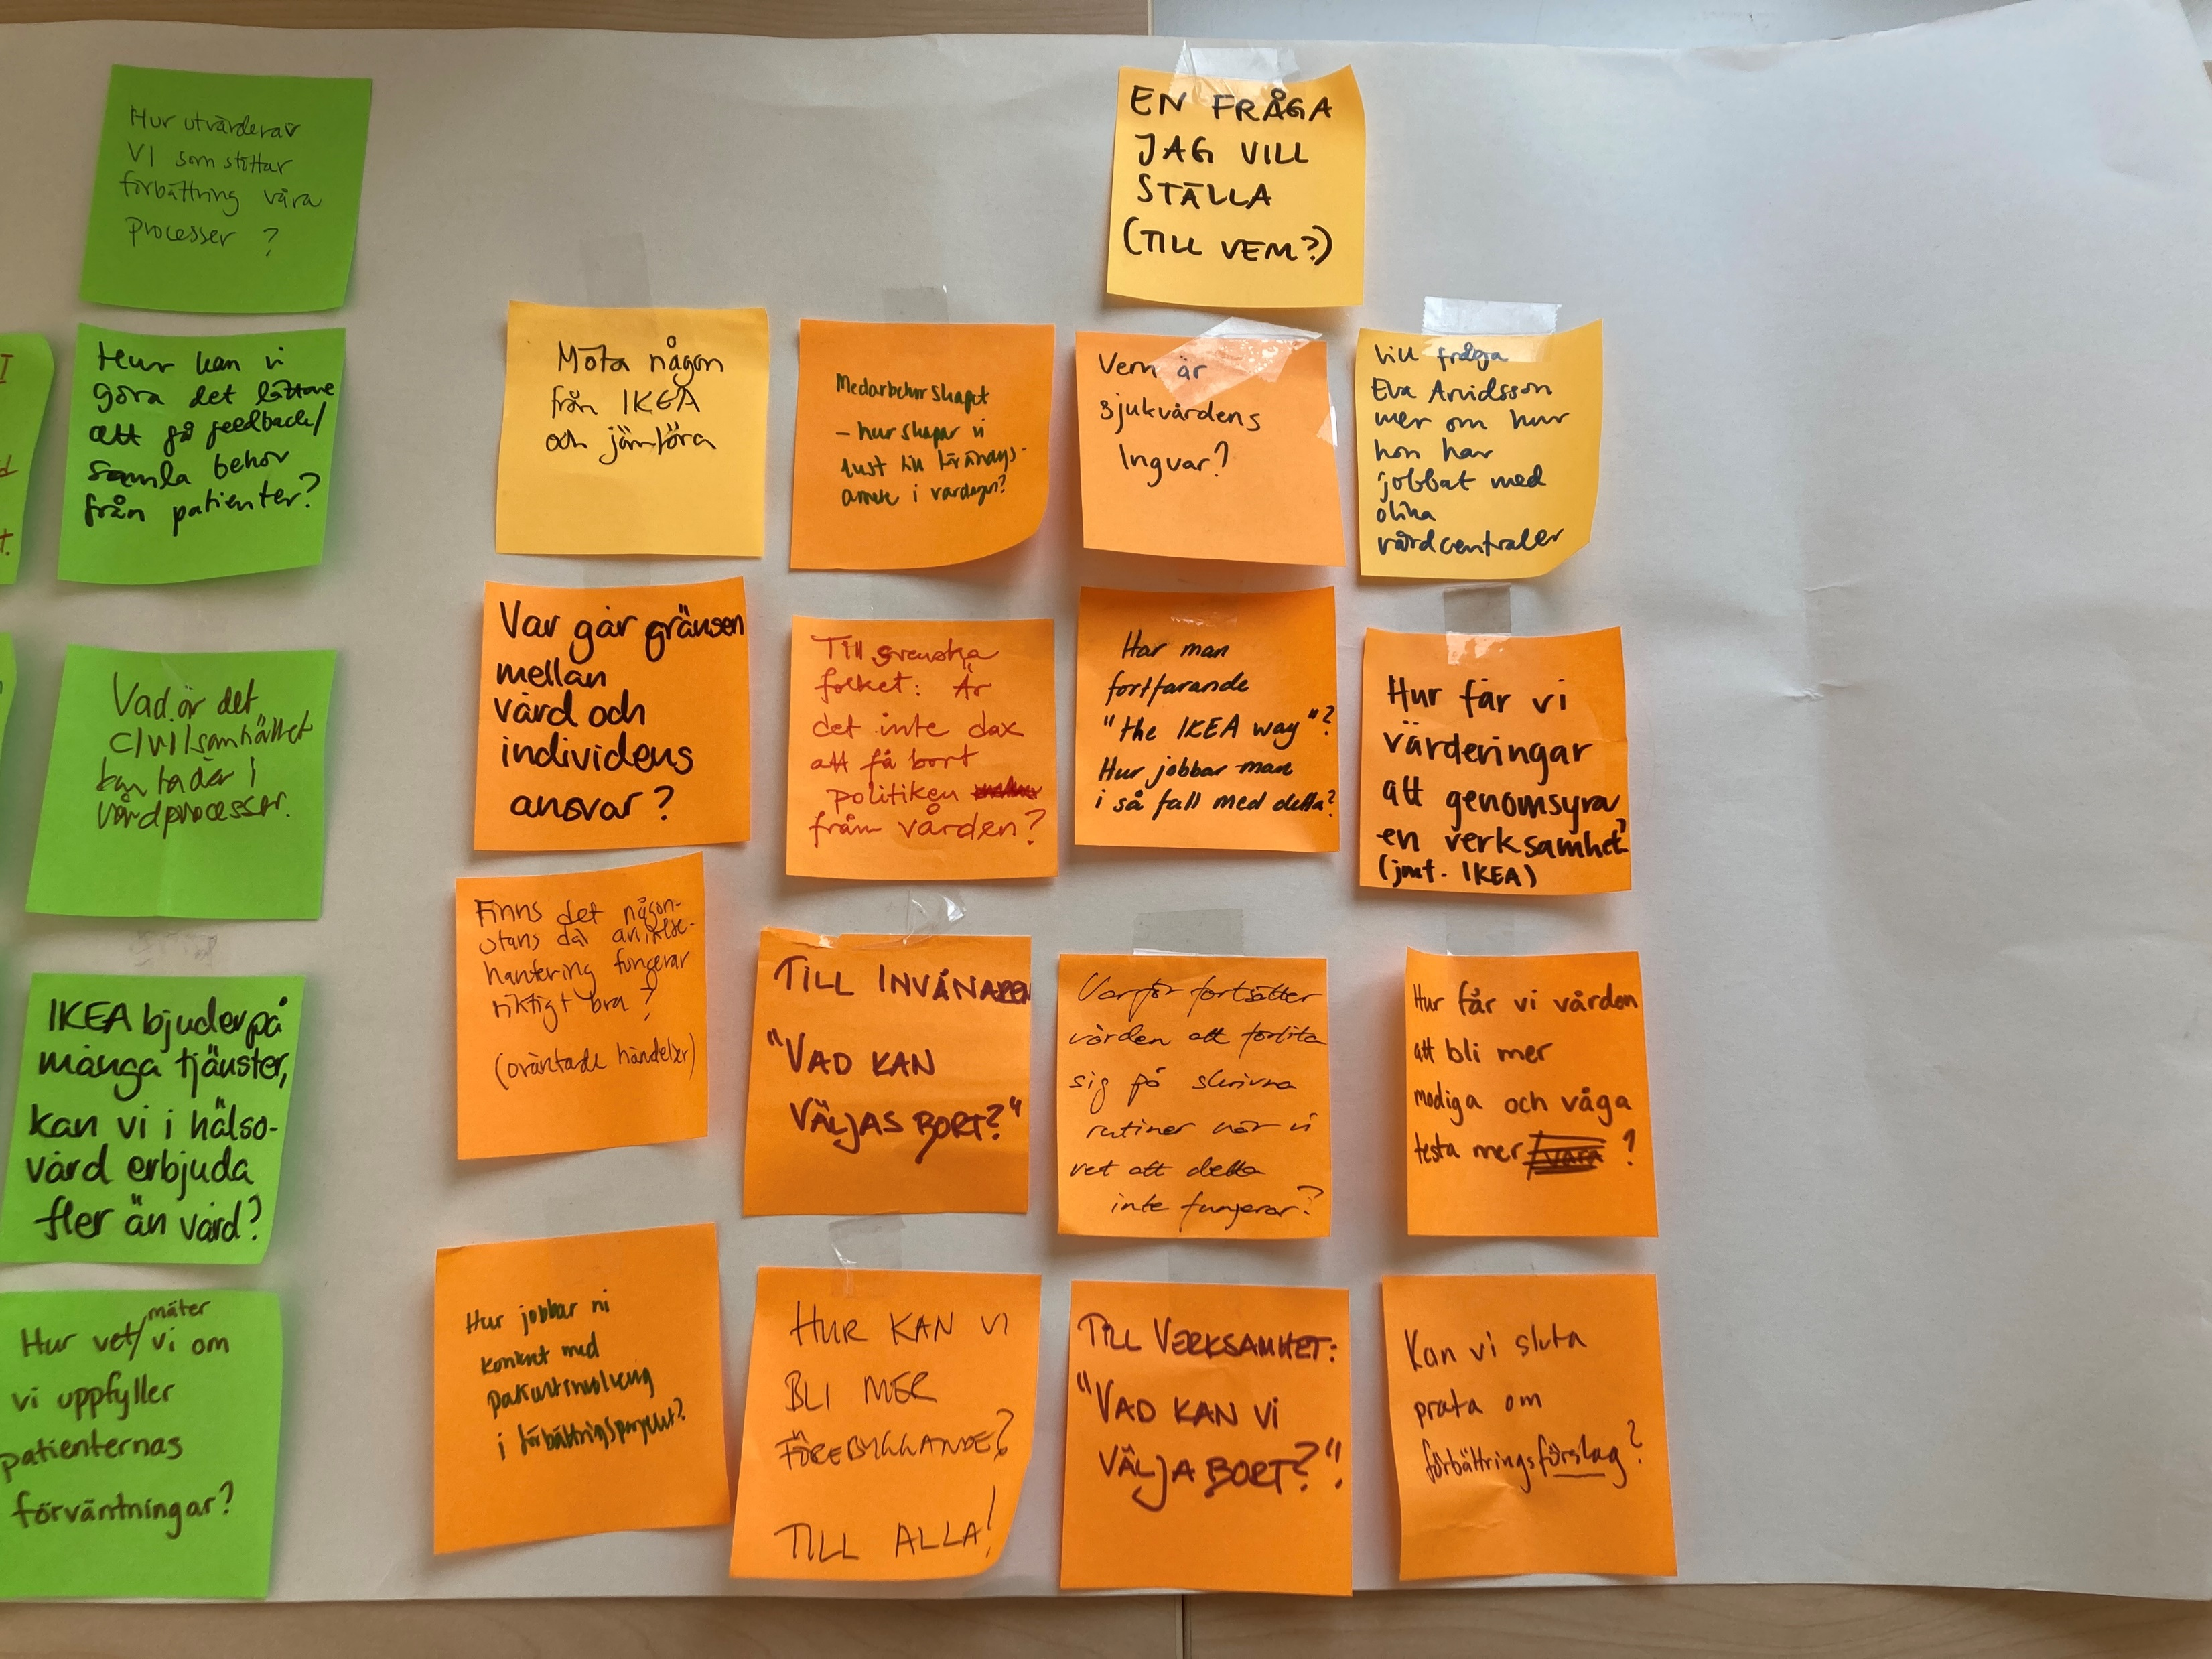 Hur utvärderar
VI som stöttar
förbättring våra
processer ?
Hur kan vi
göra det lättare
att få feedback/
samla behov
från patienter?
Vad är det
civilsamhället
kan ta där i
vårdprocesser.
IKEA bjuder på
många tjänster,
kan vi i hälso-
vård erbjuda
fler än vård?
mäter
Hur vet/ vi om
vi uppfyller
patienternas
förväntningar?
EN FRÅGA
JAG VILL
STÄLLA
(TILL VEM?)
Möta någon
från IKEA
och jämföra
Medarbetarskapet
– hur skapar vi
lust till
i vardagen?
Vem är
sjukvårdens
Ingvar?
Vill fråga
Eva Arvidsson
mer om hur
hon har
jobbat med
olika
vårdcentraler
Var går gränsen
mellan
vård och
individens
ansvar?
Till svenska
folket: Är
det inte dax
att få bort
politiken
från vården?
Har man
fortfarande
"the IKEA way"?
Hur jobbar man
i så fall med detta?
Hur får vi
värderingar
att genomsyra
en verksamhet?
(jmf. IKEA)
Finns det någon-
stans där avvikelse-
hantering fungerar
riktigt bra?
(oväntade händelser)
TILL INVÅNAREN
"VAD KAN
VÄLJAS BORT?"
Varför fortsätter
vården att förlita
sig på skrivna
rutiner när vi
vet att detta
inte fungerar?
Hur får vi vården
att bli mer
modiga och våga
testa mer ?
Hur jobbar ni
konkret med
patientinvolvering
i förbättringsprojekt?
HUR KAN VI
BLI MER
FÖREBYGGANDE?
TILL ALLA!
TILL VERKSAMHET:
"VAD KAN VI
VÄLJA BORT?".
Kan vi sluta
prata om
förbättringsförslag?